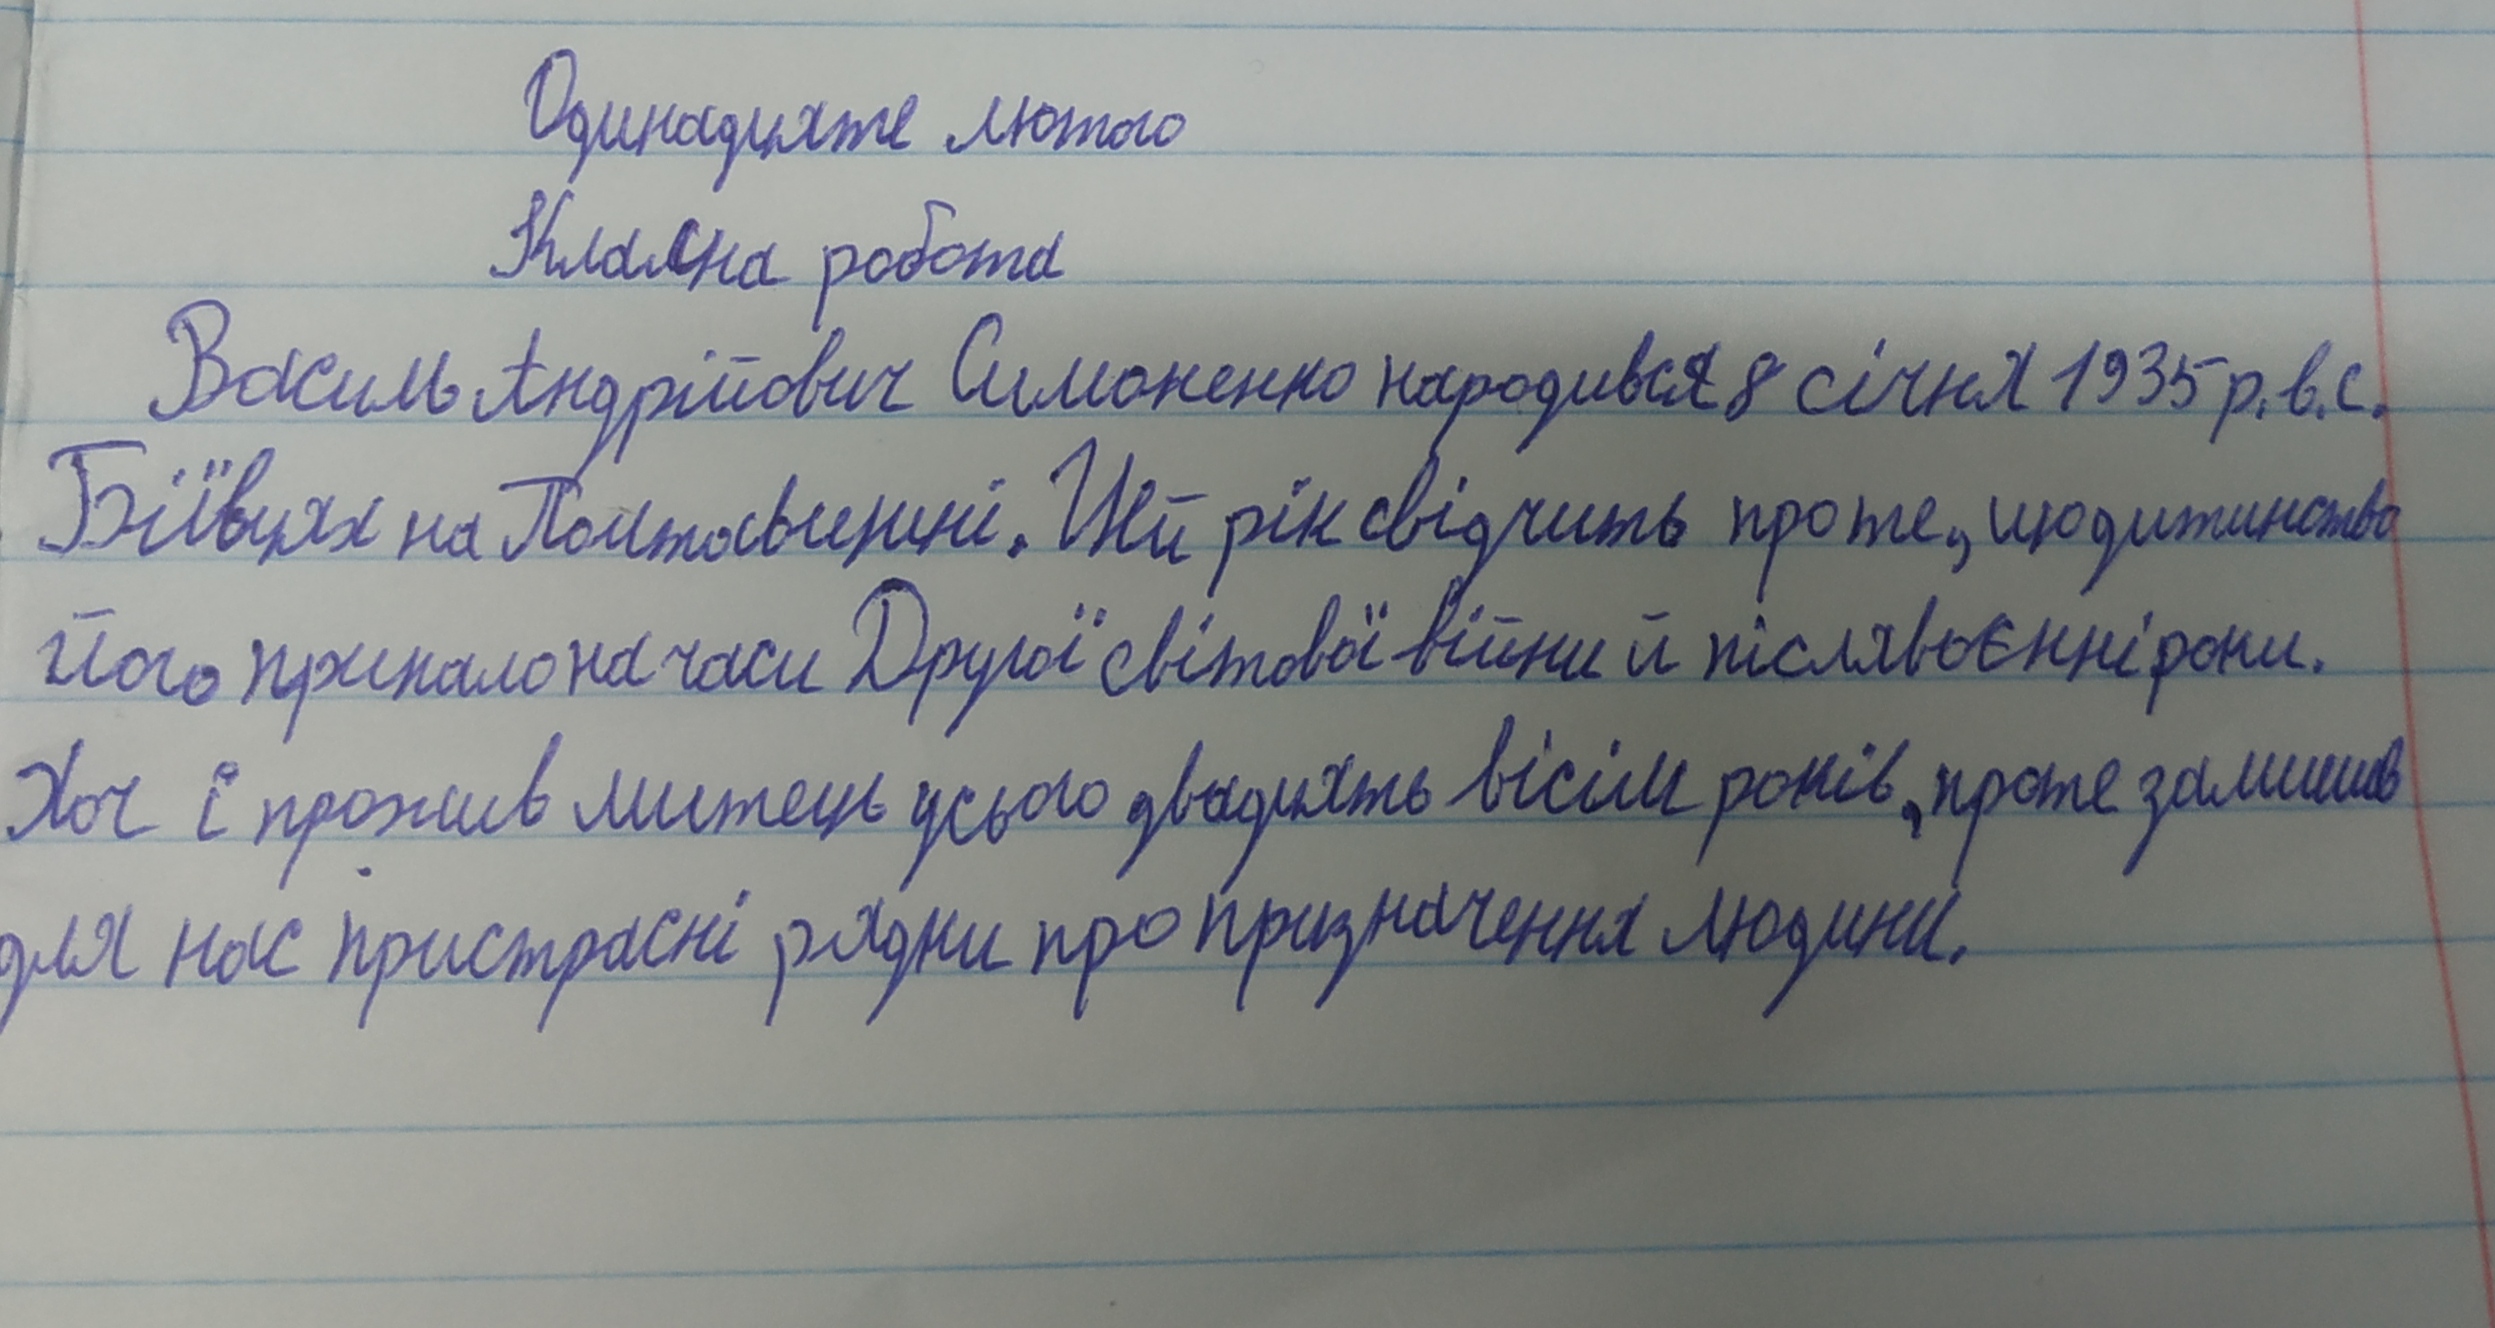 Одинадцяте лютого
Класна робота
Василь Андрійович Симоненко народився 8 січня 1935 р. в. с.
Біївцях на Полтавщині. Цей рік свідчить про те, що дитинство
його припало на часи Другої світової війни й післявоєнні роки.
Хоч і прожив митець усього двадцять вісім років, проте залишив
для нас пристрасні рядки про призначення людини.